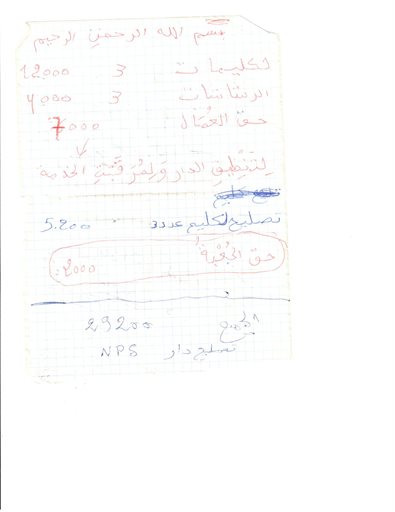 بسم الله الرحمن الرحيم
لكليمات 3 12000
الرشاشات 3 4000
حق العُمّال 7000
لِتَنْظِيفِ الدار وَلِمُرَقَبَةِ الخدمة
تصليح لكليم عدد 3 5.200
حق الجُعْبَة 2000
الجميع 29200
تصليح دار NPS